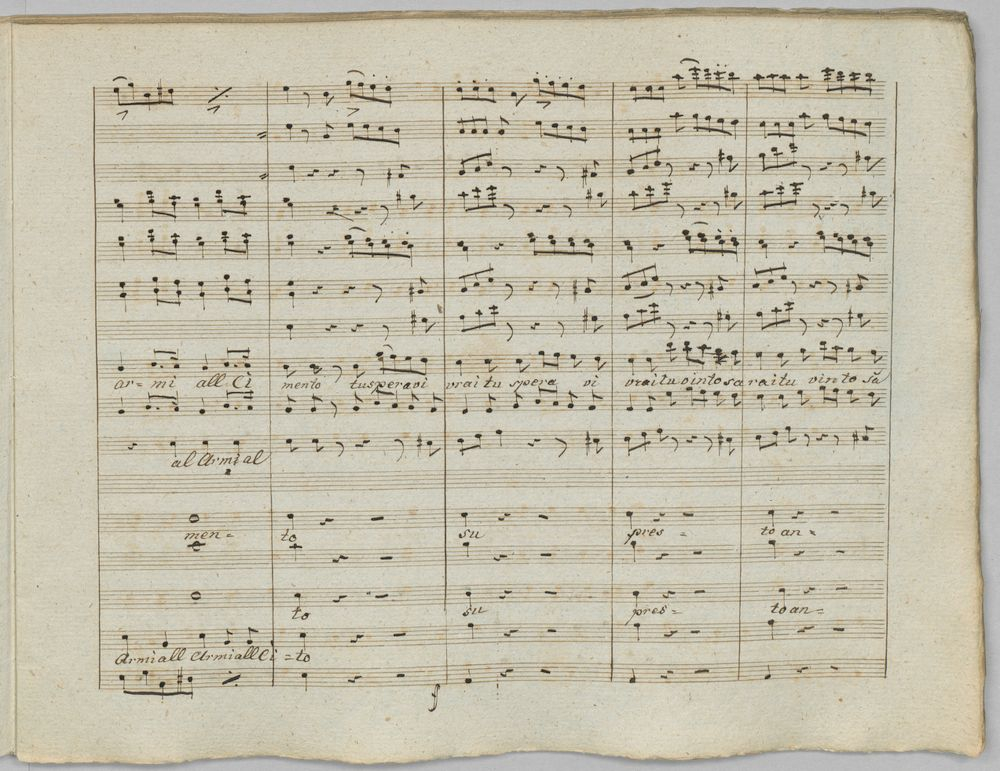 ar= mi all Ci mento tu spera vi vrai tu spera vi vrai tu vinto sa rai tu vinto sa
al Armi al
men= to su pres = to an =
to su pres= to an=
Armi all Armi all Ci =to
f